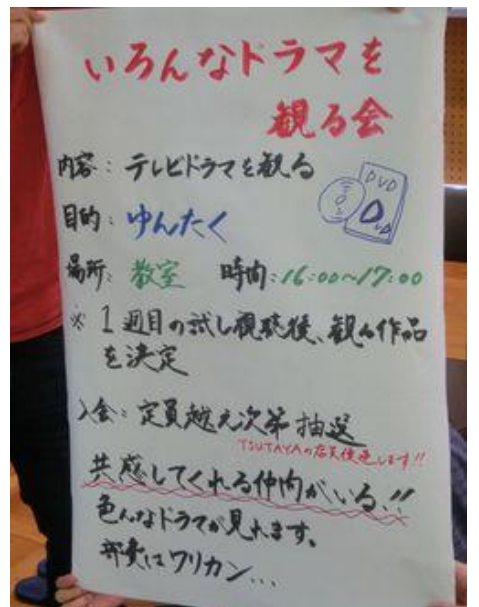 いろんなドラマを
観る会
内容：テレビドラマを観る
DVD
目的：ゆんたく
場所：教室 時間：16:00~17:00
※1週目の試し視聴後、観る作品
を決定
入会：定員越え次第抽選
TSUTAYAの店員優遇します!!
共感してくれる仲間がいる!!
色んなドラマが見れます。
部費はワリカン...